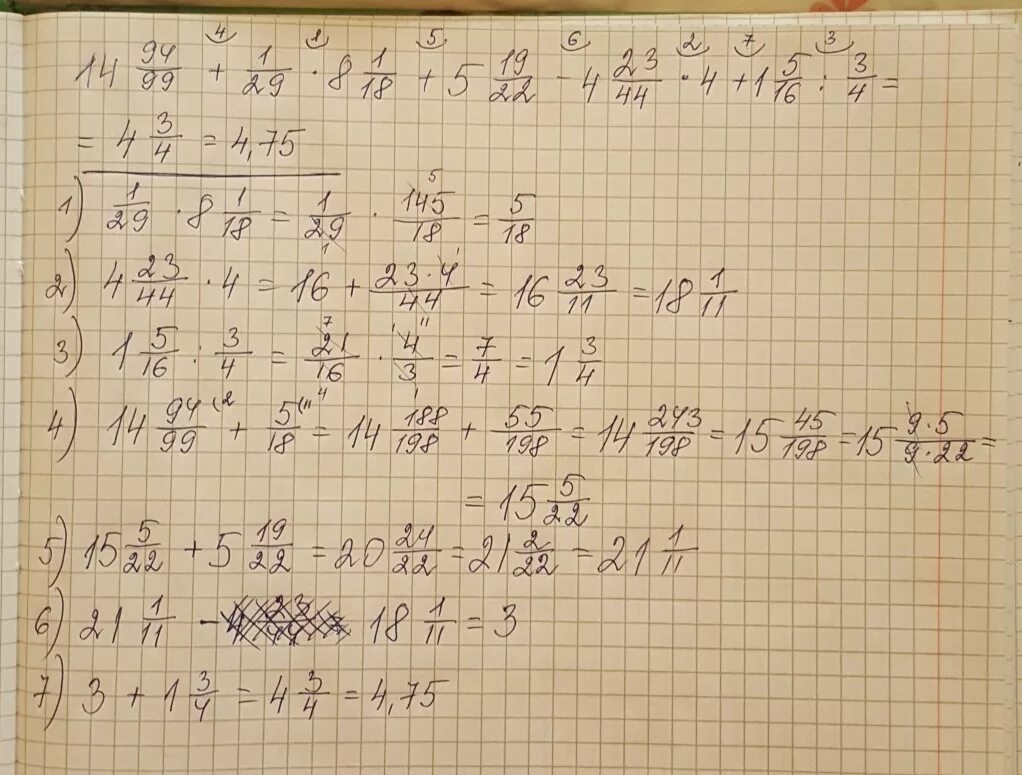 14 94/99 + 1/29 · 8 1/18 + 5 19/22 - 4 23/44 · 4 + 1 5/16 : 3/4 =
= 4 3/4 = 4,75
1) 1/29 · 8 1/18 = 1/29 · 145/18 = 5/18
2) 4 23/44 · 4 = 16 + 23·4/44 = 16 23/11 = 18 1/11
3) 1 5/16 : 3/4 = 21/16 · 4/3 = 7/4 = 1 3/4
4) 14 94/99 + 5/18 = 14 188/198 + 55/198 = 14 243/198 = 15 45/198 = 15 9·5/9·22 =
= 15 5/22
5) 15 5/22 + 5 19/22 = 20 24/22 = 21 2/22 = 21 1/11
6) 21 1/11 - 18 1/11 = 3
7) 3 + 1 3/4 = 4 3/4 = 4,75